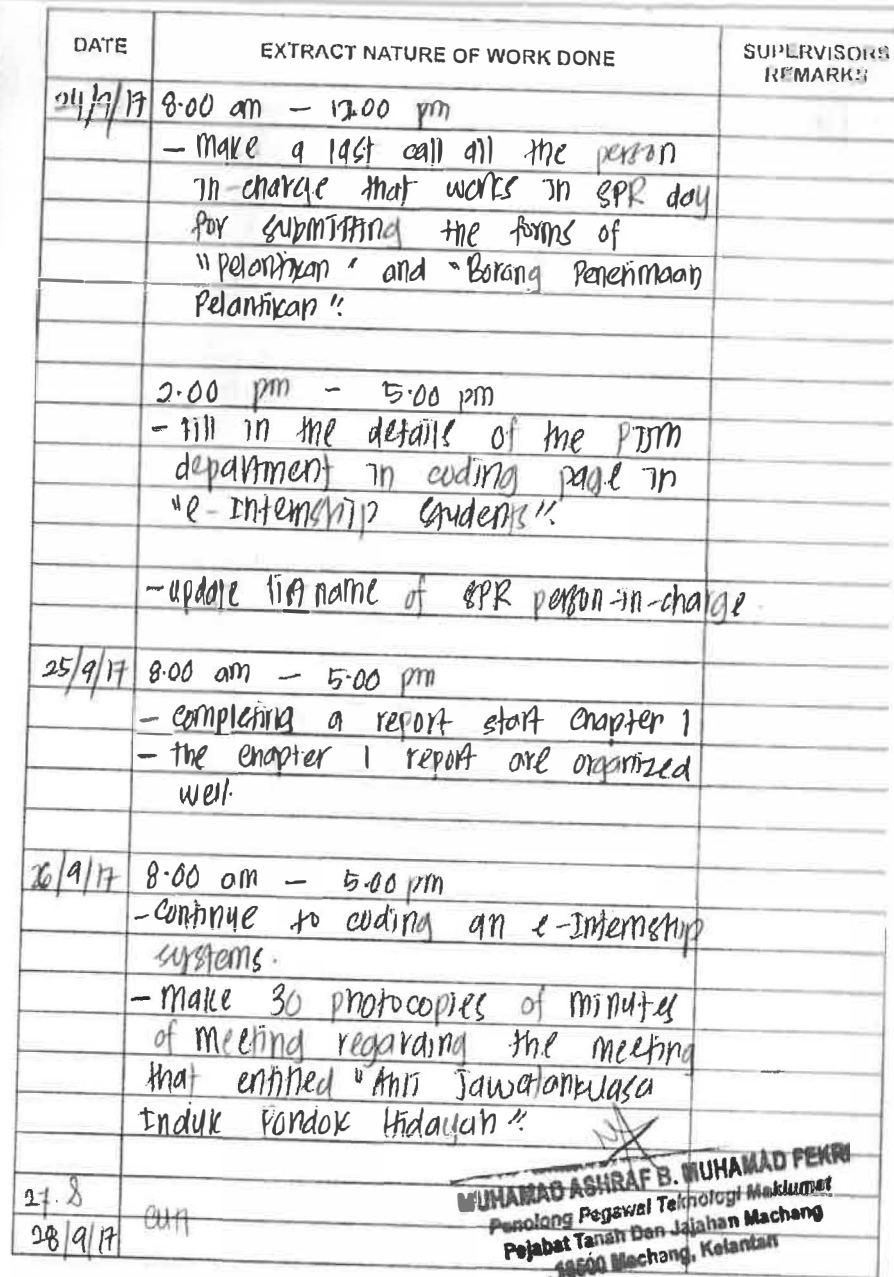 DATE EXTRACT NATURE OF WORK DONE SUPERVISORS
REMARKS
24/9/17 8.00 am — 12.00 pm
- make a last call all the person
in-charge that works in SPR day
for submitting the forms of
"Pelantikan" and "Borang Penerimaan
Pelantikan".
2.00 pm - 5.00 pm
- fill in the details of the PTJM
department in coding page in
"e-Internship Students".
- update list name of SPR person-in-charge.
25/9/17 8.00 am — 5.00 pm
- completing a report start chapter 1
- the chapter 1 report are organized
well.
26/9/17 8.00 am — 5.00 pm
- Continue to coding an e-Internship
systems.
- Make 30 photocopies of minutes
of meeting regarding the meeting
that entitled "Ahli Jawatankuasa
Induk Pondok Hidayah".
MUHAMAD ASHRAF B. MUHAMAD FEKRI
Penolong Pegawai Teknologi Maklumat
Pejabat Tanah Dan Jajahan Machang
18500 Machang, Kelantan
27 &
28/9/17 cuti